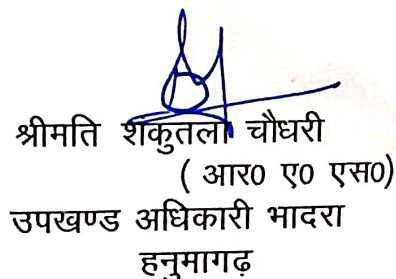 श्रीमति शकुतला चौधरी
( आर0 ए0 एस0)
उपखण्ड अधिकारी भादरा
हनुमागढ़